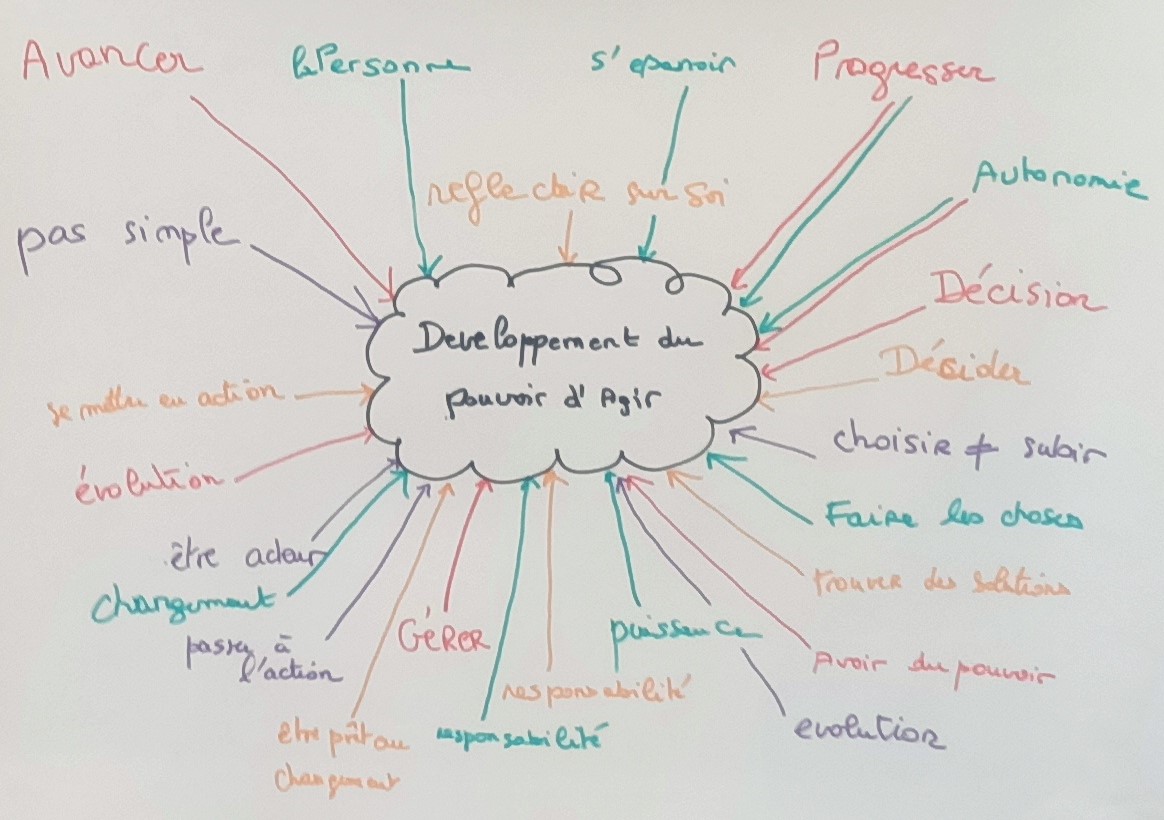 Avancer
la Personne
s'epanoir
Progresser
reflechir sur soi
Autonomie
pas simple
Décision
Developpement du
pouvoir d'Agir
Décider
se mettre en action
choisir ≠ subir
évolution
Faire les choses
être acteur
trouver des solutions
changement
GÉRER
puissance
passer à
l'action
Avoir du pouvoir
responsabilité
être prêt au
changement
responsabilité
evolution